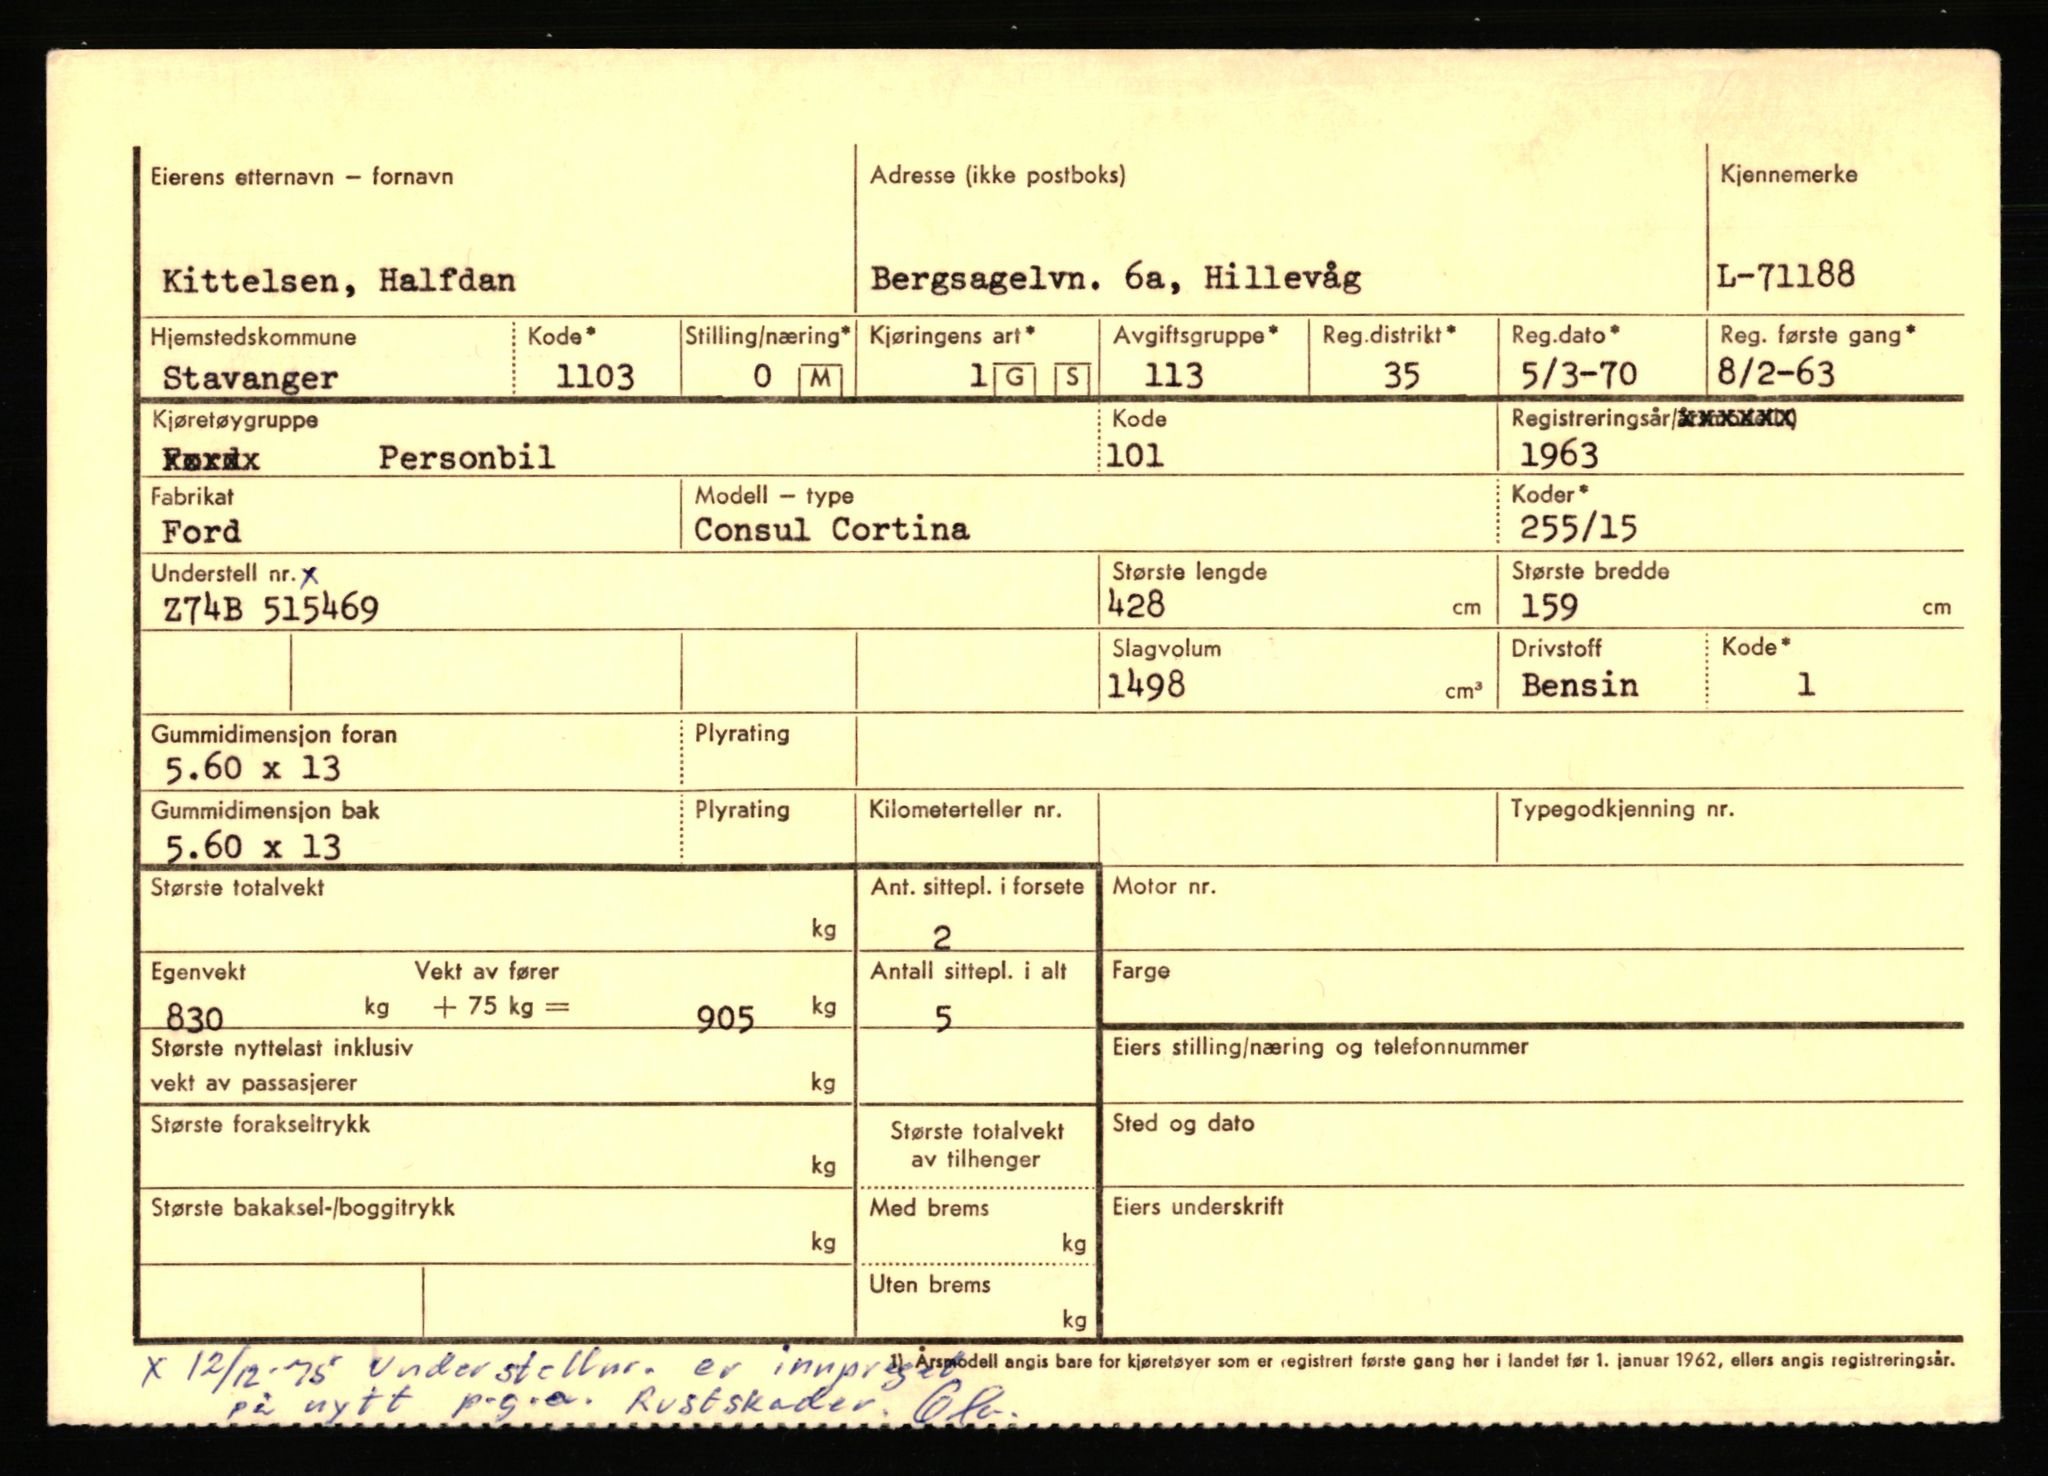 Eierens etternavn — fornavn Adresse (ikke postboks) Kjennemerke
Kittelsen, Halfdan Bergsagelvn. 6a, Hillevåg L-71188
Hjemstedskommune Kode* Stilling/næring* Kjøringens art* Avgiftsgruppe* Reg.distrikt* Reg.dato* Reg. første gang*
Stavanger 1103 0 M 1 G S 113 35 5/3-70 8/2-63
Kjøretøygruppe Kode Registreringsår/
Personbil 101 1963
Fabrikat Modell — type Koder*
Ford Consul Cortina 255/15
Understell nr. x Største lengde Største bredde
Z74B 515469 428 cm 159 cm
Slagvolum Drivstoff Kode*
1498 cm³ Bensin 1
Gummidimensjon foran Plyrating
5.60 x 13
Gummidimensjon bak Plyrating Kilometerteller nr. Typegodkjenning nr.
5.60 x 13
Største totalvekt Ant. sittepl. i forsete Motor nr.
kg 2
Egenvekt Vekt av fører Antall sittepl. i alt Farge
830 kg + 75 kg = 905 kg 5
Største nyttelast inklusiv Eiers stilling/næring og telefonnummer
vekt av passasjerer kg
Største forakseltrykk Største totalvekt Sted og dato
kg av tilhenger
Største bakaksel-/boggitrykk Med brems Eiers underskrift
kg kg
Uten brems
kg
1) Årsmodell angis bare for kjøretøyer som er registrert første gang her i landet før 1. januar 1962, ellers angis registreringsår.
x 12/12-75 Understellnr. er innpreget
på nytt p.g.a. Rustskader.